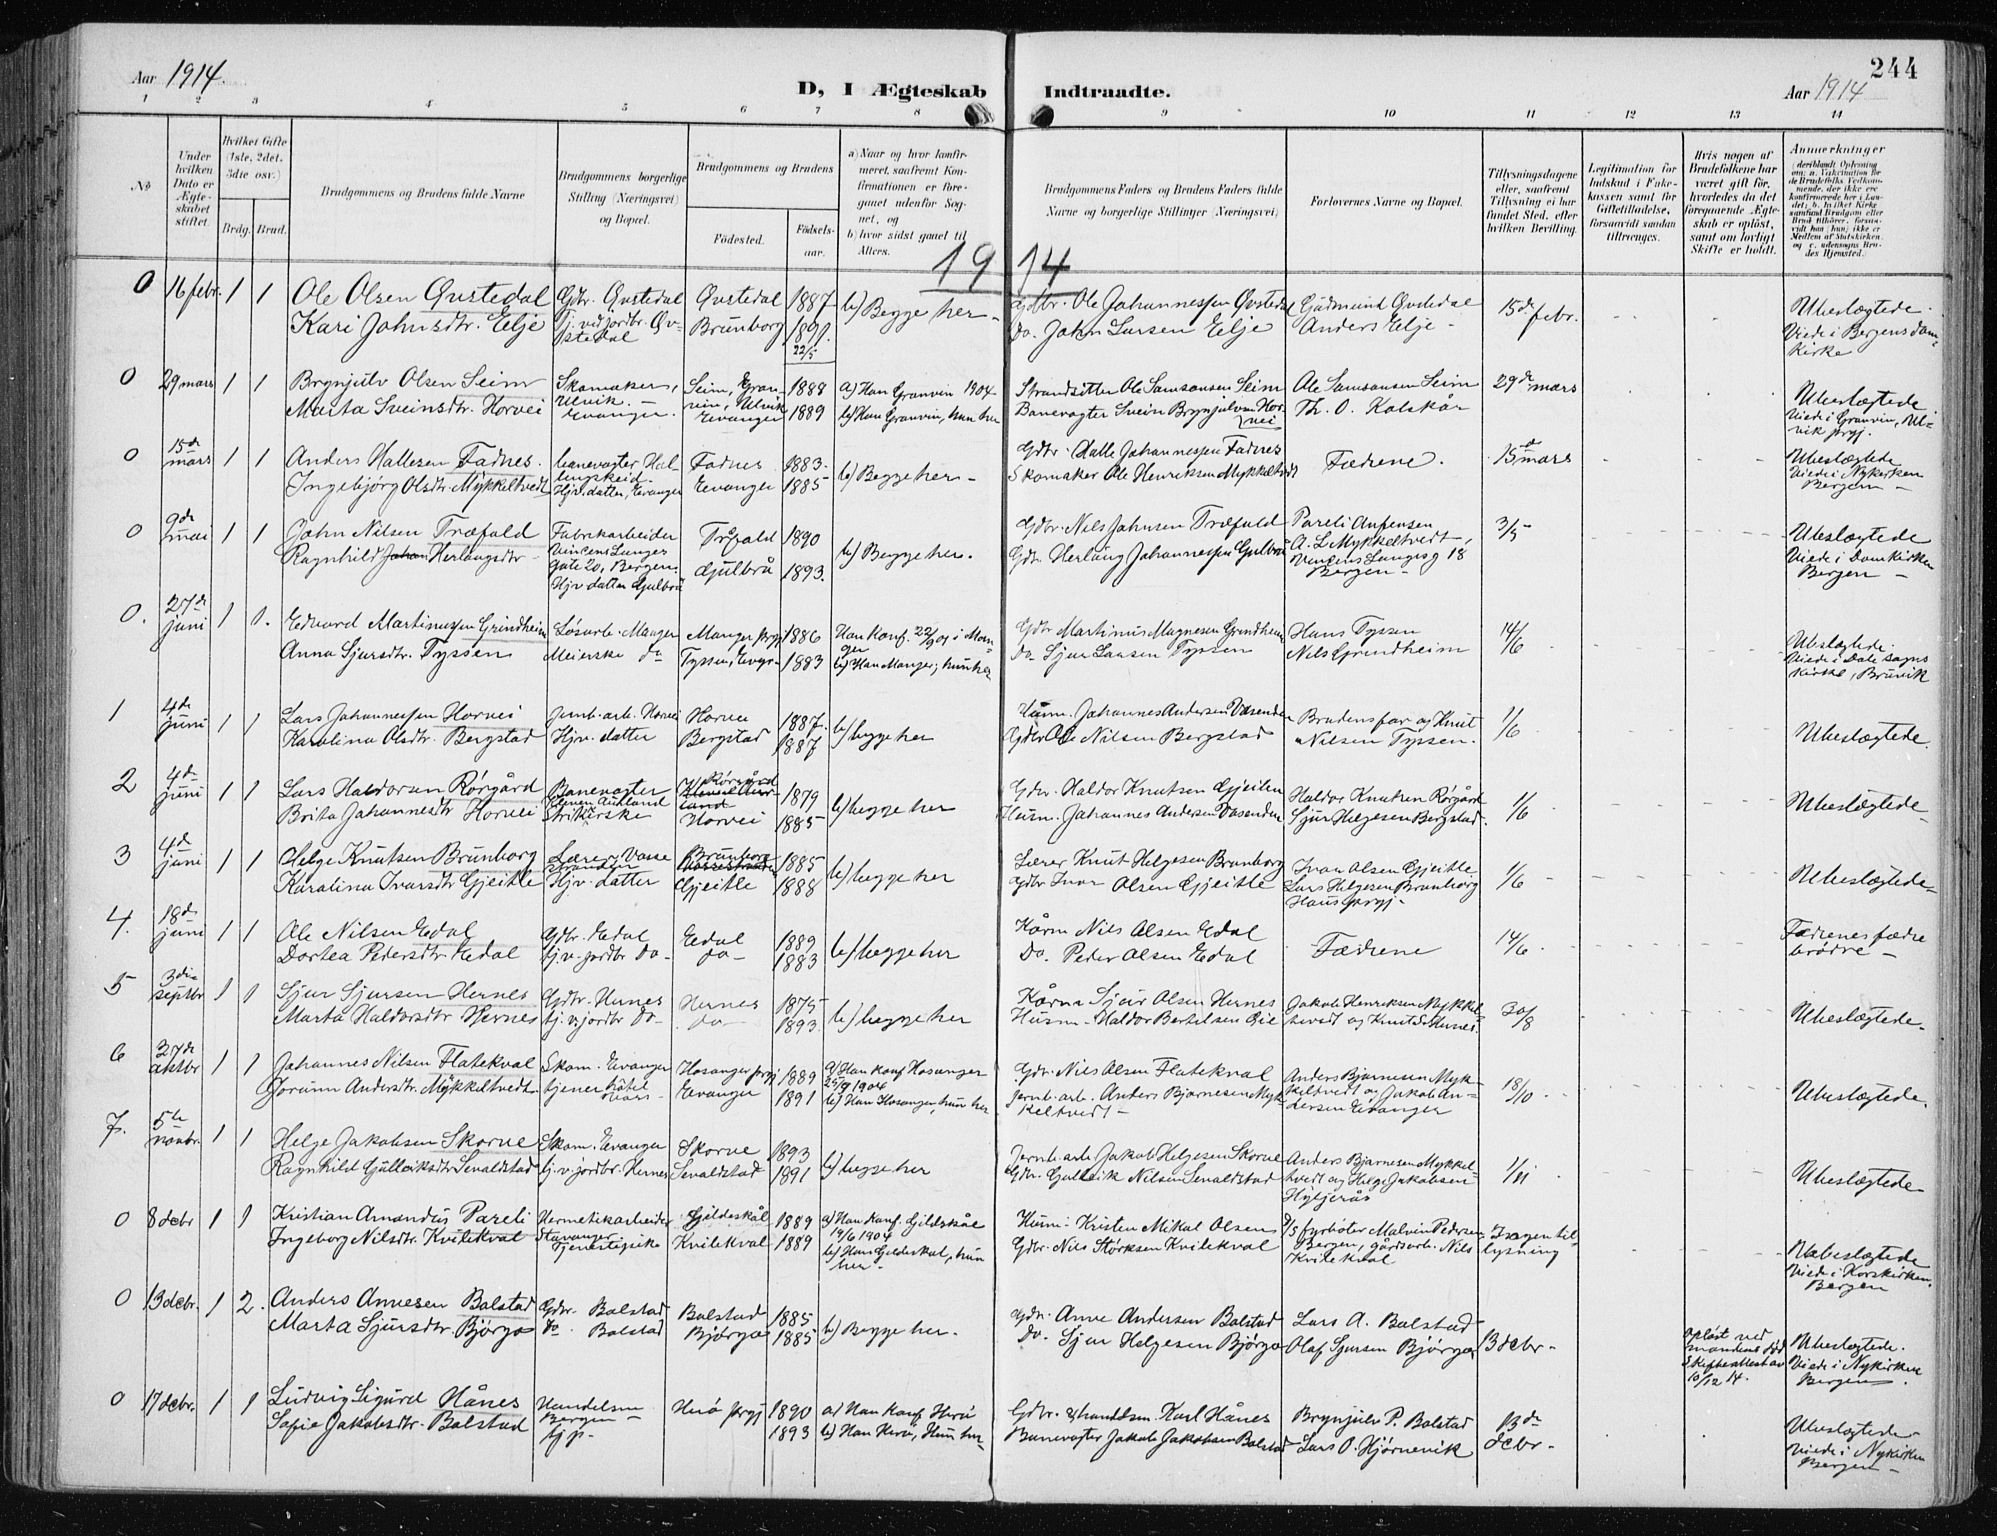 244
Aar 1914.
D, I Ægteskab Indtraadte.
Aar 1914
1 2 3 4 5 6 7 8 9 10 11 12 13 14
No
Under hvilken Dato er Ægteskabet stiftet.
Hvilket Gifte (1ste, 2det, 3die osv.)
Brdg. Brud.
Brudgommens og Brudens fulde Navne
Brudgommens borgerlige Stilling (Næringsvei) og Bopæl.
Brudgommens og Brudens
Födested.
Födselsaar.
a) Naar og hvor konfirmeret, saafremt Konfirmationen er foregaaet udenfor Sognet, og
b) hvor sidst gaaet til Alters.
Brudgommens Faders og Brudens Faders fulde Navne og borgerlige Stillinger (Næringsvei)
Forlovernes Navne og Bopæl.
Tillysningsdagene eller, saafremt Tillysning ei har fundet Sted, efter hvilken Bevilling.
Legitimation for Indskud i Enkekassen samt for Giftetilladelse, forsaavidt saadan tiltrænges.
Hvis nogen af Brudefolkene har været gift för, hvorledes da det foregaaende Ægteskab er oplöst, samt om lovligt Skifte er holdt.
Anmærkninger
1914
0 16 febr. 1 1 Ole Olsen Qvstedal Gdbr. Qvstedal Qvstedal 1887 b) Begge her - Gdbr. Ole Johannessen Qvstedal Gudmund Qvstedal 15de febr. Ubeslægtede.
Kari Johnsdtr. Eelje Tj. ved jordbr. Qvstedal Brunborg 1891. 22/5 Do. John Larsen Eelje Anders Eelje - Viede i Bergens domkirke
0 29 mars 1 1 Brynjulv Olsen Seim Skomaker, Ulvik. Seim, Granvin, Ulvik 1888 a) Han Granvin 1904 Strandsitter Ole Samsonsen Seim Ole Samsonsen Seim 29de mars Ubeslægtede
Marta Sveinsdtr. Horvei Evanger. Evanger 1889 b) Han Granvin, hun her Banevogter Svein Brynjulvsen Horvei Th. O. Kolskår Viede i Granvin, Ulvik prgj.
0 15de mars 1 1 Anders Hallesen Fadnes. banevogter, Hallingskeid. Fadnes 1883. b) Begge her - Gdbr. Halle Johannessen Fadnes Fædrene. 15de mars Ubeslægtede
Ingebjörg Olsdtr. Mykkeltvedt Hjv. datter, Evanger Evanger 1885 Skomaker Ole Henriksen Mykkeltvedt Viede i Nykirken Bergen -
0 9de mai 1 1 John Nilsen Træfald Fabrikarbeider Vincens Lunges gate 20, Bergen. Træfald 1890 b) Begge her. Gdbr. Nils Johnsen Træfald Pareli Anfensen 3/5 Ubeslægtede
Ragnhild Herlaugsdtr. Hjv. datter Gulbrå Gulbrå 1893. Gdbr. Herlaug Johannessen Gulbrå A. L. Mykkeltvedt, Vincens Lunges g 18 Bergen - Viede i Domkirken Bergen -
0. 27de juni 1 1. Edvard Martinussen Grindheim Løsarb. Manger Manger prgj 1886 Han konf. 22/9 01 i Manger Gdbr Martinus Magnesen Grindheim Hans Tyssen 14/6 Ubeslægtede.
Anna Sjursdtr. Tyssen Meierske do Tyssen, Evgr. 1883 b) Han Manger, hun her Do. Sjur Larsen Tyssen Nils Grindheim Viede i Dale sogns kirke, Bruvik
1 4de juni 1 1 Lars Johannessen Horvei Jernb. arb. Horvei Horvei 1887. b) begge her Husm. Johannes Andersen Vasenden Brudens far og Knut 1/6 Ubeslægtede.
Karolina Olsdtr. Bergstad Hjv. datter Bergstad 1887 Gdbr Ole Nilsen Bergstad Nilsen Tyssen.
2 4de juni 1 1 Lars Haldorsen Rörgård Banevogter Rörgård 1879 b) begge her Gdbr. Haldor Knutsen Gjeilen Haldor Knutsen Rörgård 1/6 Ubeslægtede
Brita Johannesdtr Horvei Strikerske Horvei 1885 Husm. Johannes Andersen Vasenden Sjur Helgesen Bergstad.
3 4de juni 1 1 Helge Knutsen Brunborg Lærer, Voss Brunborg 1885 b) begge her Lærer Knut Helgesen Brunborg Ivar Olsen Gjeitle 1/6 Ubeslægtede
Karolina Ivarsdtr Gjeitle Hjv. datter Gjeitle 1888 Gdbr Ivar Olsen Gjeitle Lars Helgesen Brunborg Haus prgj.
4. 18de juni 1 1 Ole Nilsen Edal Gdbr. Edal Edal 1889 b) begge her Kårm Nils Olsen Edal Fædrene 14/6 Fædrenes fædre brödre -
Dortea Pedersdtr Edal tj. v. jordbr do do 1883 Do. Peder Olsen Edal
5 3die septbr 1 1 Sjur Sjursen Hernes Gdbr. Hernes Hernes 1875 b) begge her Kårm Sjur Olsen Hernes Jakob Henriksen Mykkeltvedt og Knut S. Hernes 30/8 Ubeslægtede.
Marta Haldorsdtr Hernes tj. v. jordbr do do 1893. Husm. Haldor Bertelsen Gil
6 27de oktbr 1 1 Johannes Nilsen Flatekval Skom. Evanger Hosanger prgj 1889 a) Han konf Hosanger 25/9 1904 Gdbr. Nils Olsen Flatekval Anders Bjarnesen Mykkeltvedt og Jakob Evanger 18/10 Ubeslægtede.
Jorunn Andersdtr. Mykkeltvedt tjener hôtel Evanger 1891 b) Han Hosanger, hun her Jernb. arb. Anders Bjarnesen Mykkeltvedt -
7. 5te novbr. 1 1 Helge Jakobsen Skorve Skom. Evanger Skorve 1893 b) begge her Jernb. arb Jakob Helgesen Skorve Anders Bjarnesen Mykkeltvedt og Helge Jakobsen 1/11 Ubeslægtede
Ragnhild Gulleiksdtr Sevaldstad tj. v. jordbr. Hernes Sevaldstad 1891 Gdbr. Gulleik Nilsen Sevaldstad
0 8 debr 1 1 Kristian Amandus Pareli Hermetikarbeider Stavanger Gildeskål 1889 a) Han konf Gildskål 19/6 1904 Husm. Kristen Mikal Olsen D/S fyrböter Malvin Pedersen Bergen, gårdsarb. Nils Kvilekval Ingen tillysning Ubeslægtede
Ingeborg Nilsdtr. Kvilekval Tjenestepike Kvilekval 1889 b) Han Gildeskål, hun her - Gdbr. Nils Störksen Kvilekval Viede i Korskirken, Bergen
0 13 debr. 1 2. Anders Annesen Bolstad Gdbr. Bolstad Bolstad 1885 b) Begge her. Gdbr. Anve Andersen Bolstad Lars A. Bolstad 13 debr - oplöst ved mandens död Skifteattest av 10/12 14. Ubeslægtede.
Marta Sjursdtr Björgo do. Bolstad Björgo 1885 Do. Sjur Helgesen Björgo Olaf Sjursen Björgo Viede i Nykirken Bergen
0 17 debr. 1 1 Ludvig Sigurd Hånes Handelsm Bergen - Herö prgj 1890 a) Han konf Herö Gdbr. & handelsm. Karl Hånes Brynjulv P. Bolstad 13de debr - Ubeslægtede
Sofie Jakobsdtr. Bolstad tjp. 1893 b) Han Herö, Hun her Banevogter Jakob Jakobsen Bolstad Lars O. Hjörnevik Viede i Nykirken Bergen -